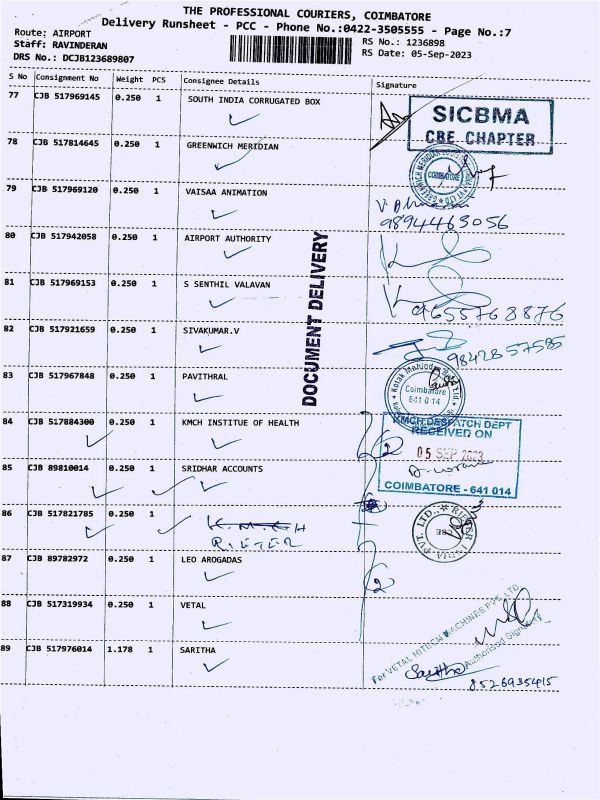 THE PROFESSIONAL COURIERS, COIMBATORE
Delivery Runsheet - PCC - Phone No.:0422-3505555 - Page No.:7
Route: AIRPORT
Staff: RAVINDERAN
RS No.: 1236898
DRS No.: DCJB123689807
RS Date: 05-Sep-2023
S No Consignment No Weight PCS Consignee Details Signature
77 CJB 517969145 0.250 1 SOUTH INDIA CORRUGATED BOX
SICBMA
CBE. CHAPTER
78 CJB 517814645 0.250 1 GREENWICH MERIDIAN
COIMBATORE
79 CJB 517969120 0.250 1 VAISAA ANIMATION
9894463056
80 CJB 517942058 0.250 1 AIRPORT AUTHORITY
DOCUMENT DELIVERY
81 CJB 517969153 0.250 1 S SENTHIL VALAVAN
9655768876
82 CJB 517921659 0.250 1 SIVAKUMAR.V
9842857585
83 CJB 517967848 0.250 1 PAVITHRAL
Kotak Mahindra
Coimbatore
641 014
84 CJB 517884300 0.250 1 KMCH INSTITUE OF HEALTH
KMCH DESPATCH DEPT
RECEIVED ON
05 SEP 2023
COIMBATORE - 641 014
85 CJB 89810014 0.250 1 SRIDHAR ACCOUNTS
86 CJB 517821785 0.250 1 K.M.C.H
RIETER
RIETER INDIA PVT. LTD.
CBE
87 CJB 89782972 0.250 1 LEO AROGADAS
88 CJB 517319934 0.250 1 VETAL
For VETAL HITECH MACHINES PVT LTD
Authorised Signatory
89 CJB 517976014 1.178 1 SARITHA
Saritha
8526935415